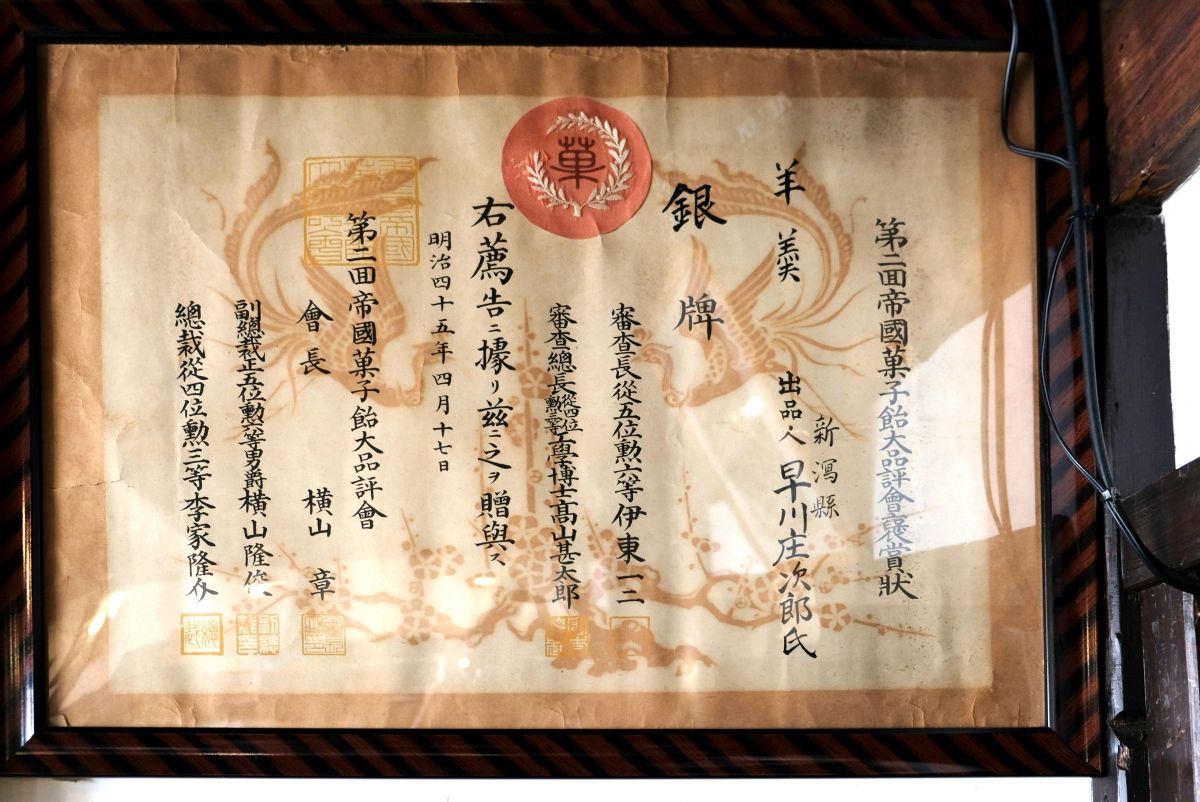 第二回帝國菓子飴大品評會褒賞狀
新潟縣
羊羹 出品人 早川庄次郎氏
銀牌
審査長從五位勲六等伊東一二
審査總長從四位勲三等工學博士髙山甚太郎
菓
右薦告ニ據リ茲ニ之ヲ贈與ス
明治四十五年四月十七日
第二回帝國菓子飴大品評會
會長 橫山章
副總裁正五位勲六等男爵橫山隆俊
總裁從四位勲三等李家隆介